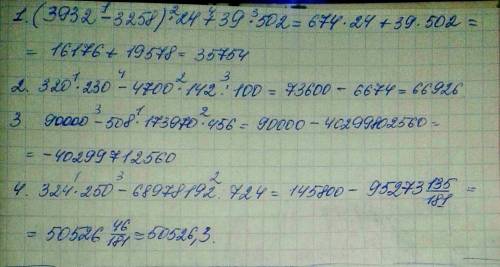 1. (3932 ¹- 3258) ²· 24 ⁴+ 39 ³· 502 = 674 · 24 + 39 · 502 =
= 16176 + 19578 = 35754
2. 320 ¹· 230 ⁴- 4700 ²· 142 ³: 100 = 73600 - 6674 = 66926
3 90000 ³- 508 ¹· 173970 ²· 456 = 90000 - 40299802560 =
= -40299712560
4. 324 ¹· 250 ³- 68978192 ²: 724 = 145800 - 95273 135/181 =
= 50526 46/181 = 50526,3.